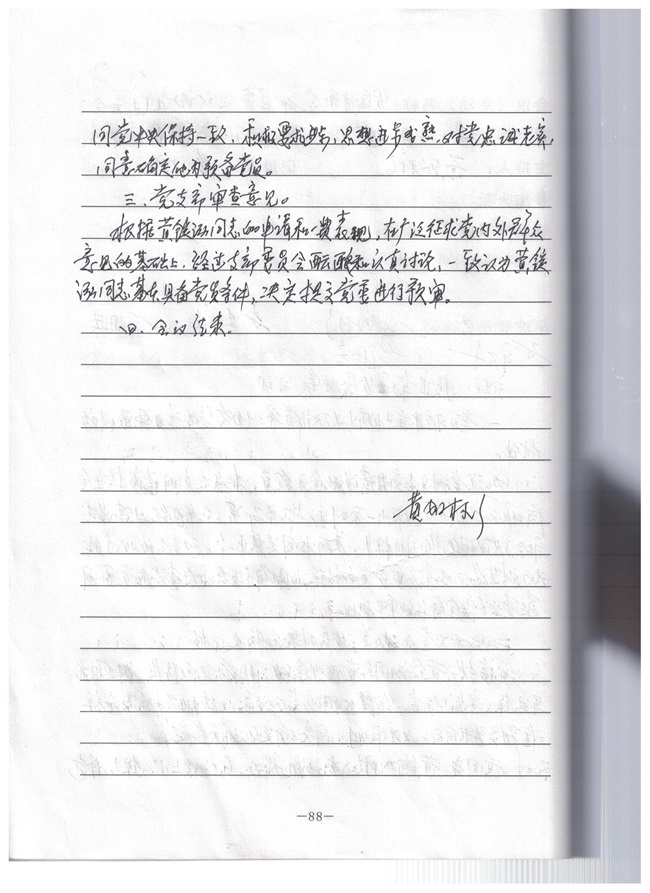 同党中央保持一致，积极要求进步，思想进步成熟，对党忠诚老实，
同意确定他为预备党员。
三、党支部审查意见。
根据黄镇泓同志的申请和一贯表现，在广泛征求党内外群众
意见的基础上，经过支部委员会酝酿和认真讨论，一致认为黄镇
泓同志基本具备党员条件，决定提交党委进行预审。
四、会议结束。
黄
—88—